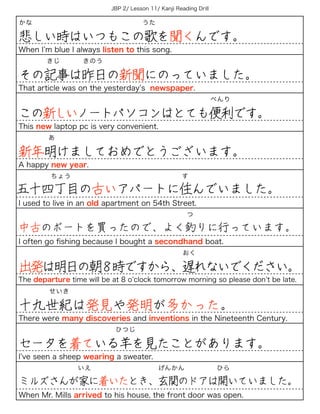 JBP 2/ Lesson 11/ Kanji Reading Drill
かな うた
悲しい時はいつもこの歌を聞くんです。
When I'm blue I always listen to this song.
きじ きのう
その記事は昨日の新聞にのっていました。
That article was on the yesterday's newspaper.
べんり
この新しいノートパソコンはとても便利です。
This new laptop pc is very convenient.
あ
新年明けましておめでとうございます。
A happy new year.
ちょう す
五十四丁目の古いアパートに住んでいました。
I used to live in an old apartment on 54th Street.
つ
中古のボートを買ったので、よく釣りに行っています。
I often go fishing because I bought a secondhand boat.
おく
出発は明日の朝８時ですから、遅れないでください。
The departure time will be at 8 o'clock tomorrow morning so please don't be late.
せいき
十九世紀は発見や発明が多かった。
There were many discoveries and inventions in the Nineteenth Century.
ひつじ
セータを着ている羊を見たことがあります。
I've seen a sheep wearing a sweater.
いえ げんかん ひら
ミルズさんが家に着いたとき、玄関のドアは開いていました。
When Mr. Mills arrived to his house, the front door was open.